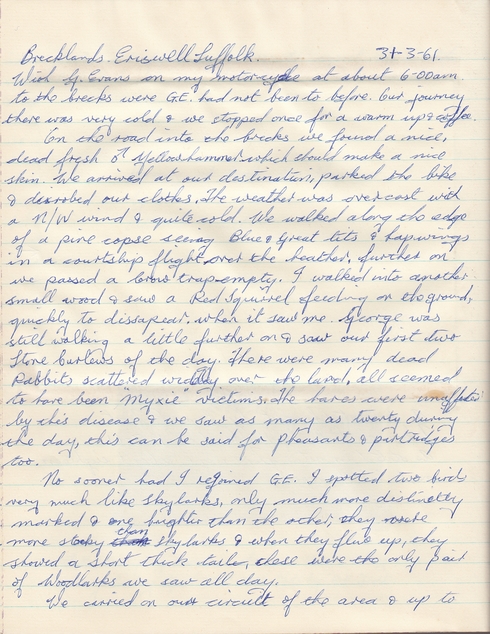 Brecklands. Eriswell Suffolk. 31-3-61.
With G. Evans on my motorcycle at about 6-00am.
to the brecks were G.E. had not been to before. Our journey
there was very cold & we stopped once for a warm up & coffee.
On the road into the brecks we found a nice,
dead fresh ♂ Yellowhammer which should make a nice
skin. We arrived at our destination, parked the bike
& disrobed our clothes. The weather was overcast with
a N/W wind & quite cold. We walked along the edge
of a pine copse seeing Blue & Great tits & Lapwings
in a courtship flight over the heather, further on
we passed a Crow trap-empty. I walked into another
small wood & saw a Red Squirrel feeding on the ground,
quickly to dissapear, when it saw me. George was
still walking a little further on & saw our first two
Stone Curlews of the day. There were many dead
Rabbits scattered widely over the land, all seemed
to have been "Myxie" victims. The hares were unaffected
by this disease & we saw as many as twenty during
the day, this can be said for pheasants & partridges
too.
No sooner had I rejoined G.E. I spotted two birds
very much like skylarks, only much more distinctly
marked & one brighter than the other, they were
more stocky than skylarks & when they flue up, they
showed a short thick tail, these were the only pair
of Woodlarks we saw all day.
We carried on our circuit of the area & up to